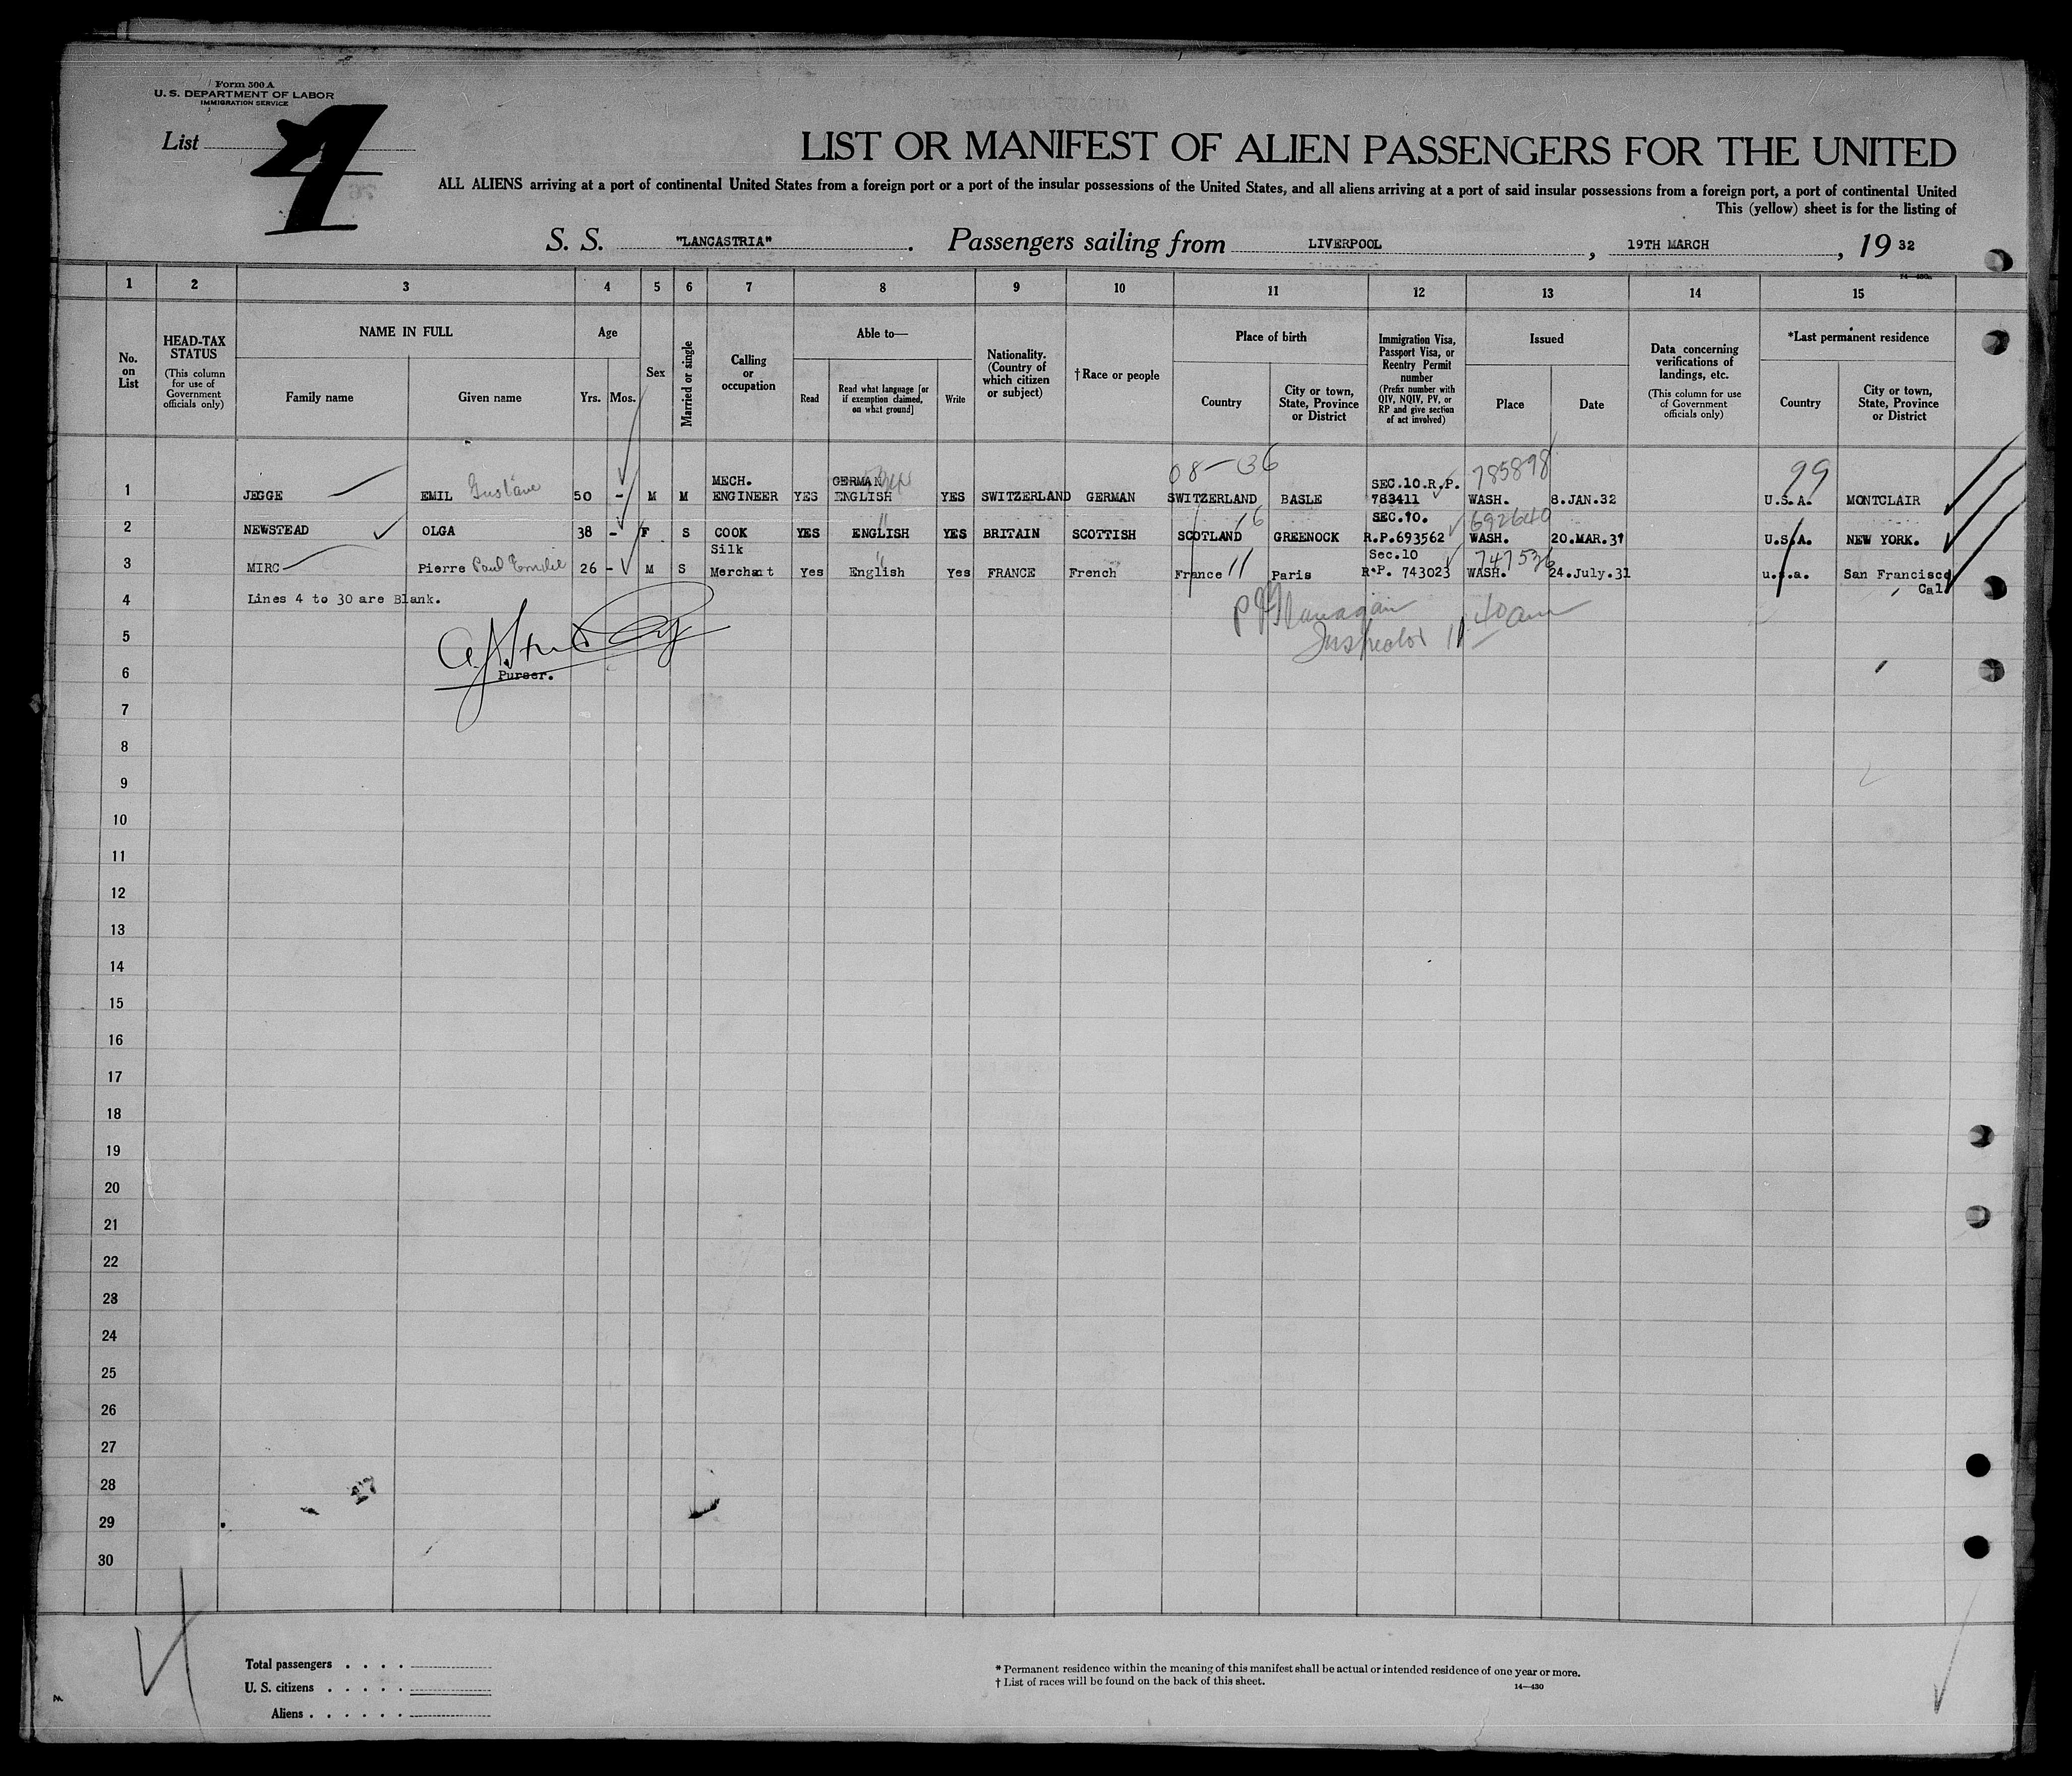 Form 500 A
U. S. DEPARTMENT OF LABOR
IMMIGRATION SERVICE
List 1
LIST OR MANIFEST OF ALIEN PASSENGERS FOR THE UNITED
ALL ALIENS arriving at a port of continental United States from a foreign port or a port of the insular possessions of the United States, and all aliens arriving at a port of said insular possessions from a foreign port, a port of continental United
This (yellow) sheet is for the listing of
S. S. "LANCASTRIA". Passengers sailing from LIVERPOOL, 19TH MARCH, 19 32
1 2 3 4 5 6 7 8 9 10 11 12 13 14 15
No. on List
HEAD-TAX STATUS (This column for use of Government officials only)
NAME IN FULL
Family name Given name
Age
Yrs. Mos.
Sex
Married or single
Calling or occupation
Able to—
Read Read what language [or if exemption claimed, on what ground] Write
Nationality. (Country of which citizen or subject)
†Race or people
Place of birth
Country City or town, State, Province or District
Immigration Visa, Passport Visa, or Reentry Permit number (Prefix number with QIV, NQIV, PV, or RP and give section of act involved)
Issued
Place Date
Data concerning verifications of landings, etc. (This column for use of Government officials only)
*Last permanent residence
Country City or town, State, Province or District
08-36 785898 99
MECH. GERMAN SEC.10.R.P.
1 JEGGE EMIL Gustave 50 - M M ENGINEER YES ENGLISH YES SWITZERLAND GERMAN SWITZERLAND BASLE 783411 WASH. 8.JAN.32 U.S.A. MONTCLAIR
16 SEC.10. 692640
2 NEWSTEAD OLGA 38 - F S COOK YES ENGLISH YES BRITAIN SCOTTISH SCOTLAND GREENOCK R.P.693562 WASH. 20.MAR.31 U.S.A. NEW YORK.
Silk Sec.10 747536
3 MIRC Pierre Paul Emilie 26 - M S Merchant Yes English Yes FRANCE French France 11 Paris R.P. 743023 WASH. 24.July.31 u.s.a. San Francisco Cal.
4 Lines 4 to 30 are Blank.
5 Inspector 11 40am
6 Purser.
7
8
9
10
11
12
13
14
15
16
17
18
19
20
21
22
23
24
25
26
27
28
29
30
Total passengers . . . .
U. S. citizens . . . . .
Aliens . . . . . .
* Permanent residence within the meaning of this manifest shall be actual or intended residence of one year or more.
† List of races will be found on the back of this sheet.
14—430